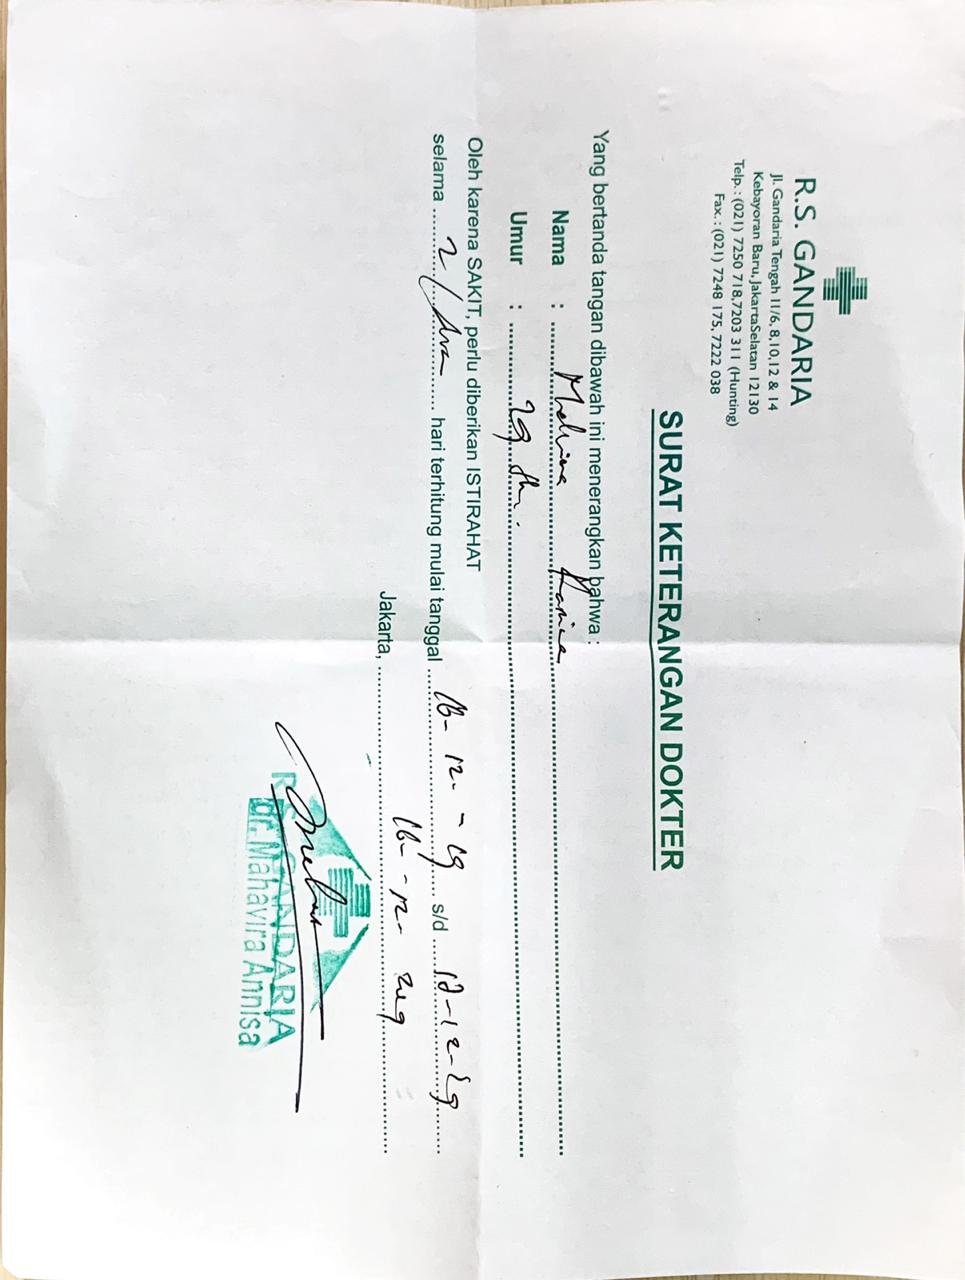 R.S. GANDARIA
Jl. Gandaria Tengah 11/6, 8,10,12 & 14
Kebayoran Baru, JakartaSelatan 12130
Telp. : (021) 7250 718,7203 311 (Hunting)
Fax. : (021) 7248 175, 7222 038
SURAT KETERANGAN DOKTER
Yang bertanda tangan dibawah ini menerangkan bahwa :
Nama :
Umur : 29 th.
Oleh karena SAKIT, perlu diberikan ISTIRAHAT
selama 2 / dua hari terhitung mulai tanggal 16-12-19 s/d 17-12-19
Jakarta, 16-12-2019
R.S. GANDARIA
dr. Mahavira Annisa